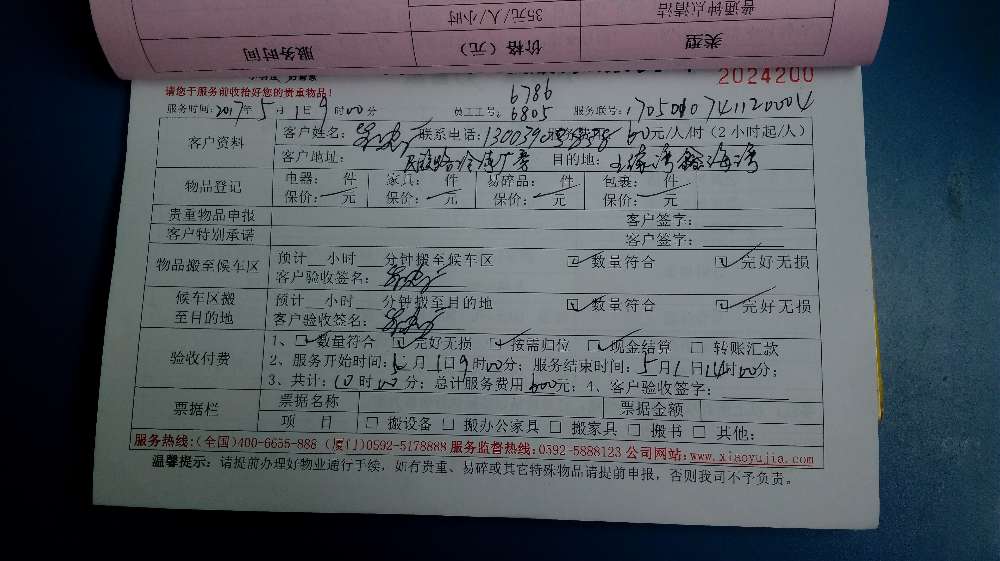 普通钟点清洁 35元/人/小时
类型 价格（元） 服务时间
2024200
请您于服务前收拾好您的贵重物品！
6786
服务时间：2017年5月1日9时00分 员工工号：6805 服务联号：
客户资料 客户姓名： 联系电话： 60元/人/时（2小时起/人）
客户地址： 目的地：
物品登记 电器： 件 家具： 件 易碎品： 件 包裹： 件
保价： 元 保价： 元 保价： 元 保价： 元
贵重物品申报 客户签字：
客户特别承诺 客户签字：
物品搬至候车区 预计__小时__分钟搬至候车区 数量符合 完好无损
客户验收签名：
候车区搬至目的地 预计__小时__分钟搬至目的地 数量符合 完好无损
客户验收签名：
验收付费 1、数量符合 完好无损 按需归位 现金结算 转账汇款
2、服务开始时间：5月1日9时00分；服务结束时间：5月1日14时00分；
3、共计：10时00分；总计服务费用600元；4、客户验收签字：
票据栏 票据名称 票据金额
项 目 搬设备 搬办公家具 搬家具 搬书 其他：
服务热线：(全国)400-6655-888 (厦门)0592-5178888 服务监督热线：0592-5888123 公司网站：www.xiaoyujia.com
温馨提示：请提前办理好物业通行手续，如有贵重、易碎或其它特殊物品请提前申报，否则我司不予负责。